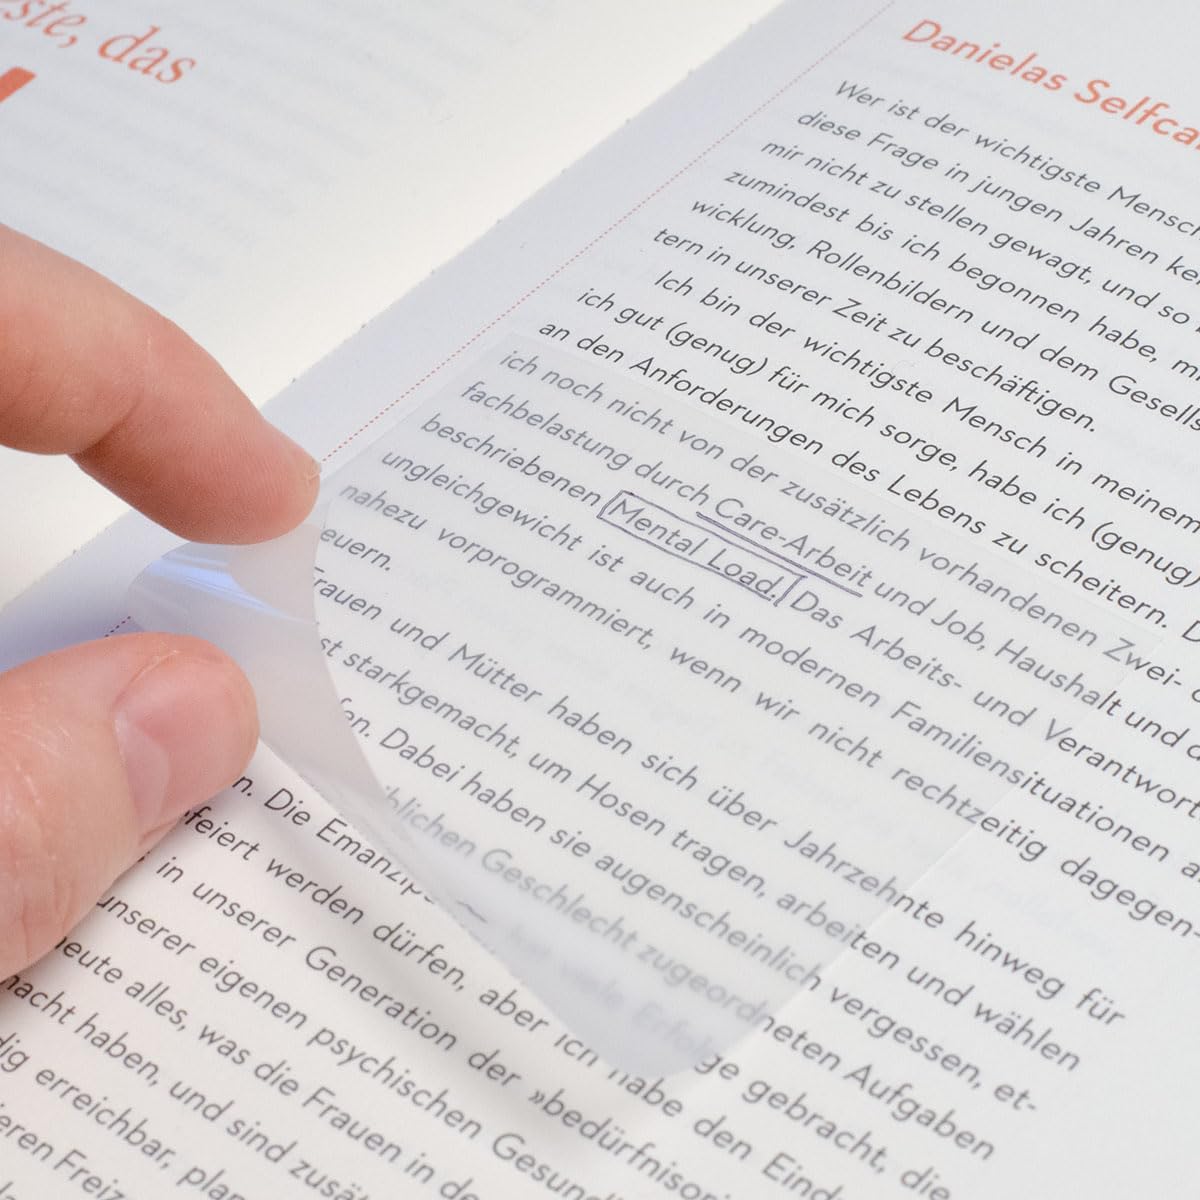 este, das
Danielas Selfca
Wer ist der wichtigste Mensch
diese Frage in jungen Jahren
mir nicht zu stellen gewagt, und so
zumindest bis ich begonnen habe,
wicklung, Rollenbildern und dem Gesells
tern in unserer Zeit zu beschäftigen.
Ich bin der wichtigste Mensch in meinem
ich gut (genug) für mich sorge, habe ich (genug)
an den Anforderungen des Lebens zu scheitern.
ich noch nicht von der zusätzlich vorhandenen Zwei-
fachbelastung durch Care-Arbeit und Job, Haushalt und
beschriebenen Mental Load. Das Arbeits- und Verantwort
ungleichgewicht ist auch in modernen Familiensituationen
nahezu vorprogrammiert, wenn wir nicht rechtzeitig dagegen-
euern.
Frauen und Mütter haben sich über Jahrzehnte hinweg für
st starkgemacht, um Hosen tragen, arbeiten und wählen
fen. Dabei haben sie augenscheinlich vergessen, et-
blichen Geschlecht zugeordneten Aufgaben
viele Erfolge gebracht, die
n. Die Emanzip
feiert werden dürfen, aber ich habe den Eind
in unserer Generation der »bedürfnisori
unserer eigenen psychischen Gesund
heute alles, was die Frauen in de
macht haben, und sind zusät
dig erreichbar, plan
eren Freiz